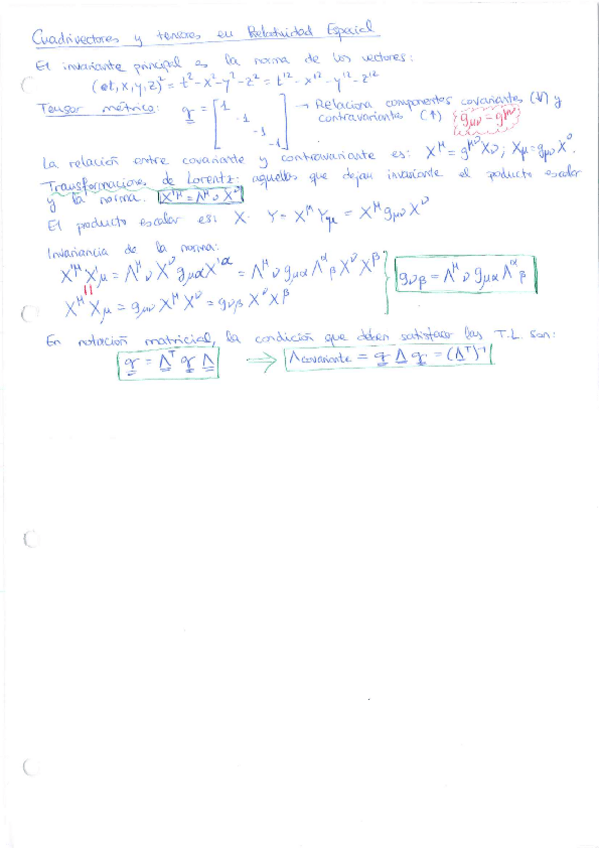 Cuadrivectores y tensores en Relatividad Especial
El invariante principal es la norma de los vectores:
(ct, x, y, z)² = t² - x² - y² - z² = t'² - x'² - y'² - z'²
Tensor métrico: g = [1 -1 -1 -1] → Relaciona componentes covariantes (↓) y
contravariantes (↑) g_μν = g^μν
La relación entre covariante y contravariante es: X^μ = g^μν X_ν ; X_μ = g_μν X^ν.
Transformaciones de Lorentz: aquellas que dejan invariante el producto escalar
y la norma. X'^μ = Λ^μ_ν X^ν
El producto escalar es: X · Y = X^μ Y_μ = X^μ g_μν X^ν
Invariancia de la norma:
X'^μ X'_μ = Λ^μ_ν X^ν g_μα X'^α = Λ^μ_ν g_μα Λ^α_β X^ν X^β
=
X^μ X_μ = g_μν X^μ X^ν = g_νβ X^ν X^β
g_νβ = Λ^μ_ν g_μα Λ^α_β
En notación matricial, la condición que deben satisfacer las T.L. son:
g = Λ^T g Λ → Λcovariante = g Λ g = (Λ^T)^-1